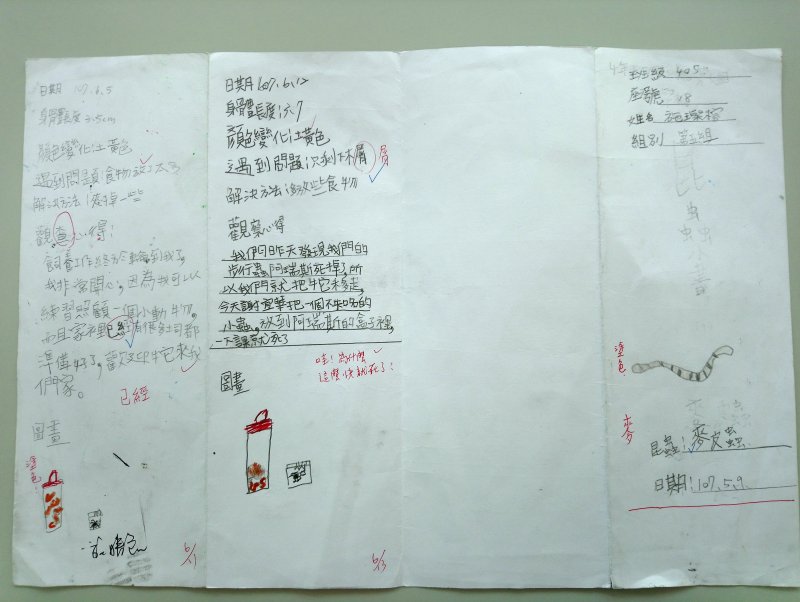 日期 107.6.5
身體長度:3.5cm
顏色變化:土黃色
遇到問題:食物放了太多
解決方法:拿掉一些
觀察心得:
飼養工作終於輪到我了,
我非常開心,因為我可以
練習照顧一個小動物,
而且家裡已經有很多司都
準備好了,歡迎牠來我
們家。
已經
圖畫
塗色
6/11
日期 107.6.12
身體長度:六7
顏色變化:土黃色
遇到問題:只剩木屑
屑
解決方法:放些食物
觀察心得
我們昨天發現我們的
步行蟲阿瑞斯死掉了,所
以我們就把牠拿走,
今天謝宜蓁把一個不知名的
小蟲,放到阿瑞斯的盒子裡,
一下課就死了
哇!為什麼
這麼快就死了?
圖畫
6/13
4年
班級 405
座號 18
姓名
組別 第五組
昆蟲小書
塗色
麥
昆蟲:麥皮蟲
日期:107.5.9.